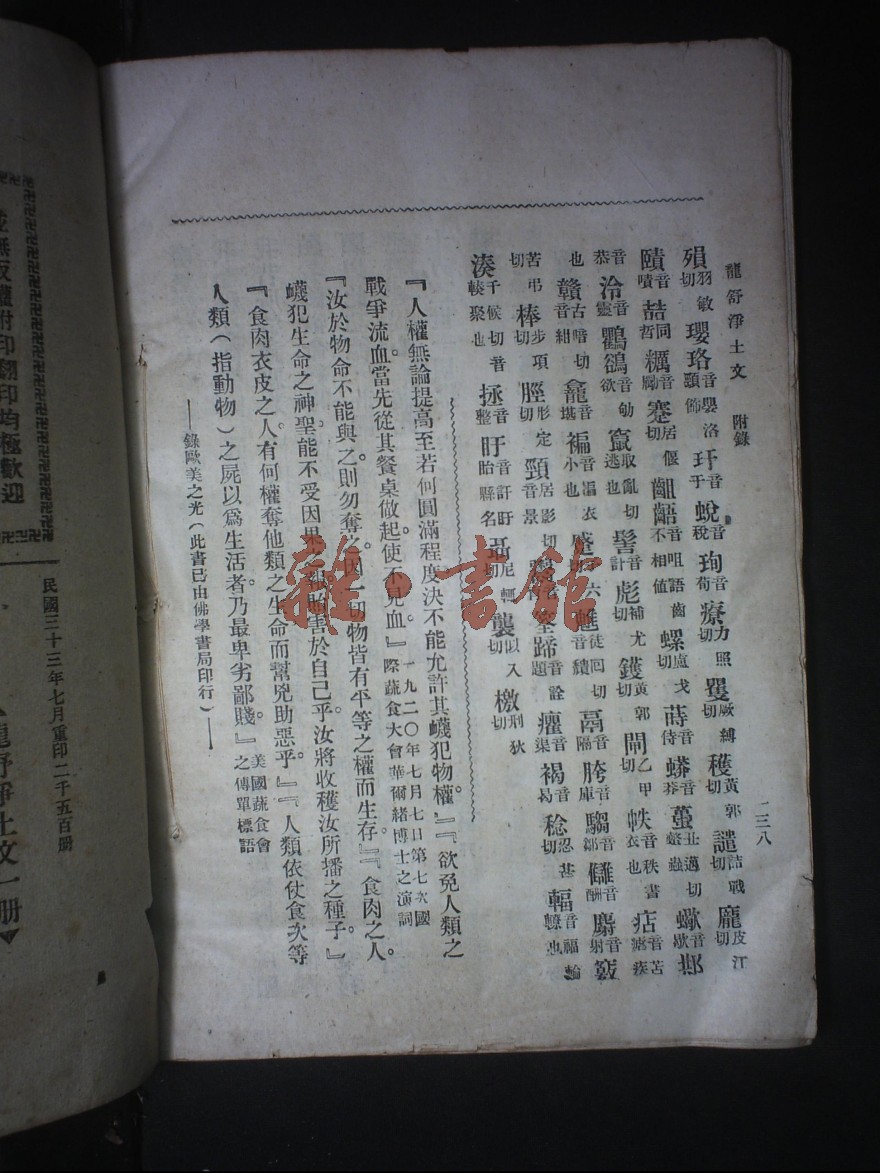 龍舒淨土文 附錄
二三八
殞羽敏切 瓔珞音嬰洛 玕音于 蛻音稅 珣音荀 療力照切 矍厥縛切 穫黃郭切 譴詰戰切 龐皮江切
賾音嘖 喆同哲 糲音勵 蹇居偃切 齟齬音咀語齒不相值 螺盧戈切 蒔音侍 蟒音莽 蠆丑邁切螫蟲 蠍音歇 邺
恭音也 泠音靈 鸜鵒音劬欲 竄取亂切逃也 髻音計 彪補尤切 鑊黃郭切 閘乙甲切 帙音秩書衣也 痁音苫瘧疾
贛古暗切音紺 龕音堪 褊音惼衣小也 徒回切 鬲音隔 胯音庫 騶音鄒 讎音酬 麝音射 竅
苦弔切 棒步項切 脛形定切 頸居影切音景 蹄音題 癯音渠 褐音曷 稔忍甚切 輻音福輪轑也
湊千候切音輳聚也 拯音整 盱音訏盱眙縣名 襲似入切 檄刑狄切
『人權無論提高至若何圓滿程度決不能允許其蠛犯物權』『欲免人類之
戰爭流血當先從其餐桌做起使不見血。』一九二〇年七月七日第七次國際蔬食大會華爾緒博士之演詞
『汝於物命不能與之則勿奪之因一切物皆有平等之權而生存』『食肉之人。
蠛犯生命之神聖能不受因果之報貽害於自己乎汝將收穫汝所播之種子』
『食肉衣皮之人有何權奪他類之生命而幫兇助惡乎。』『人類依仗食次等
人類（指動物）之屍以爲生活者乃最卑劣鄙賤。』美國蔬食會之傳單標語
——錄歐美之光（此書已由佛學書局印行）——
並無版權附印翻印均極歡迎
民國三十三年七月重印二千五百冊
龍舒淨土文一册
雜·書館